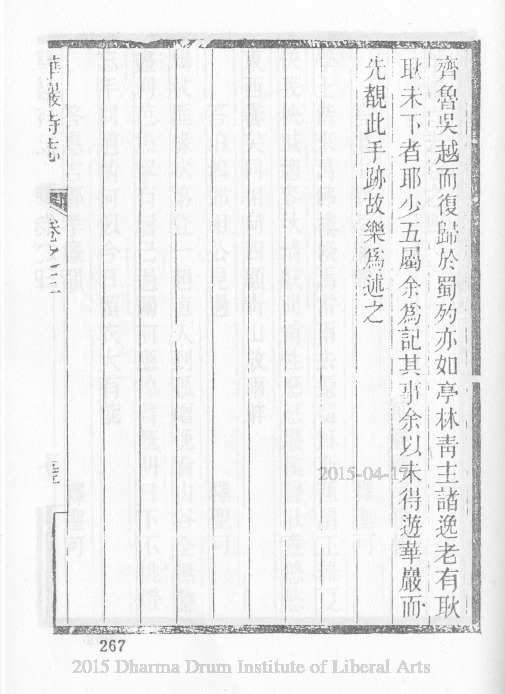 齊魯吳越而復歸於蜀殆亦如亭林青主諸逸老有耿
耿未下者耶少五屬余爲記其事余以未得遊華嚴而
先覩此手跡故樂爲述之
華嚴寺志
卷之三
2015-04-17
267
2015 Dharma Drum Institute of Liberal Arts